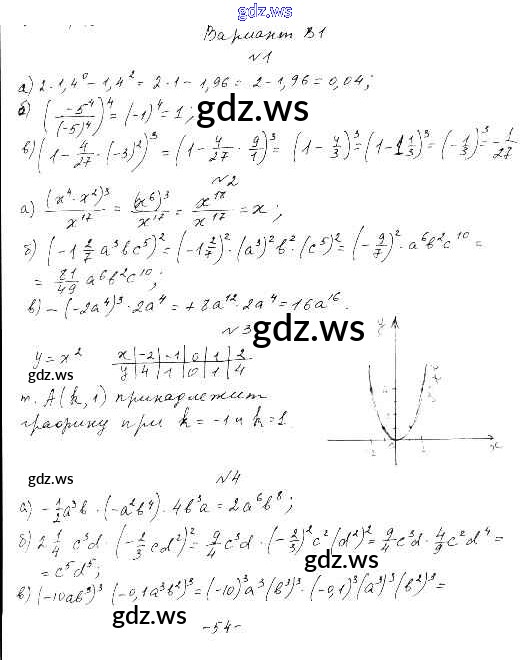 gdz.ws
Вариант В1
№1
а) 2·1,4⁰ - 1,4² = 2·1 - 1,96 = 2 - 1,96 = 0,04;
б) (-5⁴/(-5)⁴)⁴ = (-1)⁴ = 1;
gdz.ws
в) (1 - 4/27·(-3)²)³ = (1 - 4/27·9/1)³ = (1 - 4/3)³ = (1 - 1 1/3)³ = (-1/3)³ = -1/27
№2
а) (x⁴·x²)³/x¹⁷ = (x⁶)³/x¹⁷ = x¹⁸/x¹⁷ = x;
б) (-1 2/7 a³bc⁵)² = (-1 2/7)²·(a³)²b²·(c⁵)² = (-9/7)²·a⁶b²c¹⁰ =
= 81/49 a⁶b²c¹⁰;
в) -(-2a⁴)³·2a⁴ = +8a¹²·2a⁴ = 16a¹⁶.
№3
gdz.ws
y = x²
x | -2 | -1 | 0 | 1 | 2
y | 4 | 1 | 0 | 1 | 4
gdz.ws
т. A(k, 1) принадлежит
графику при k = -1 и k = 1.
y
-2
1
x
gdz.ws
№4
gdz.ws
а) -1/2a³b·(-a²b⁴)·4b³a = 2a⁶b⁸;
б) 2 1/4 c³d (-2/3cd²)² = 9/4 c³d·(-2/3)²c²(d²)² = 9/4c³d·4/9c²d⁴ =
= c⁵d⁵;
в) (-10ab³)³(-0,1a³b²)³ = (-10)³a³(b³)³·(-0,1)³(a³)³(b²)³ =
gdz.ws
gdz.ws
-54-